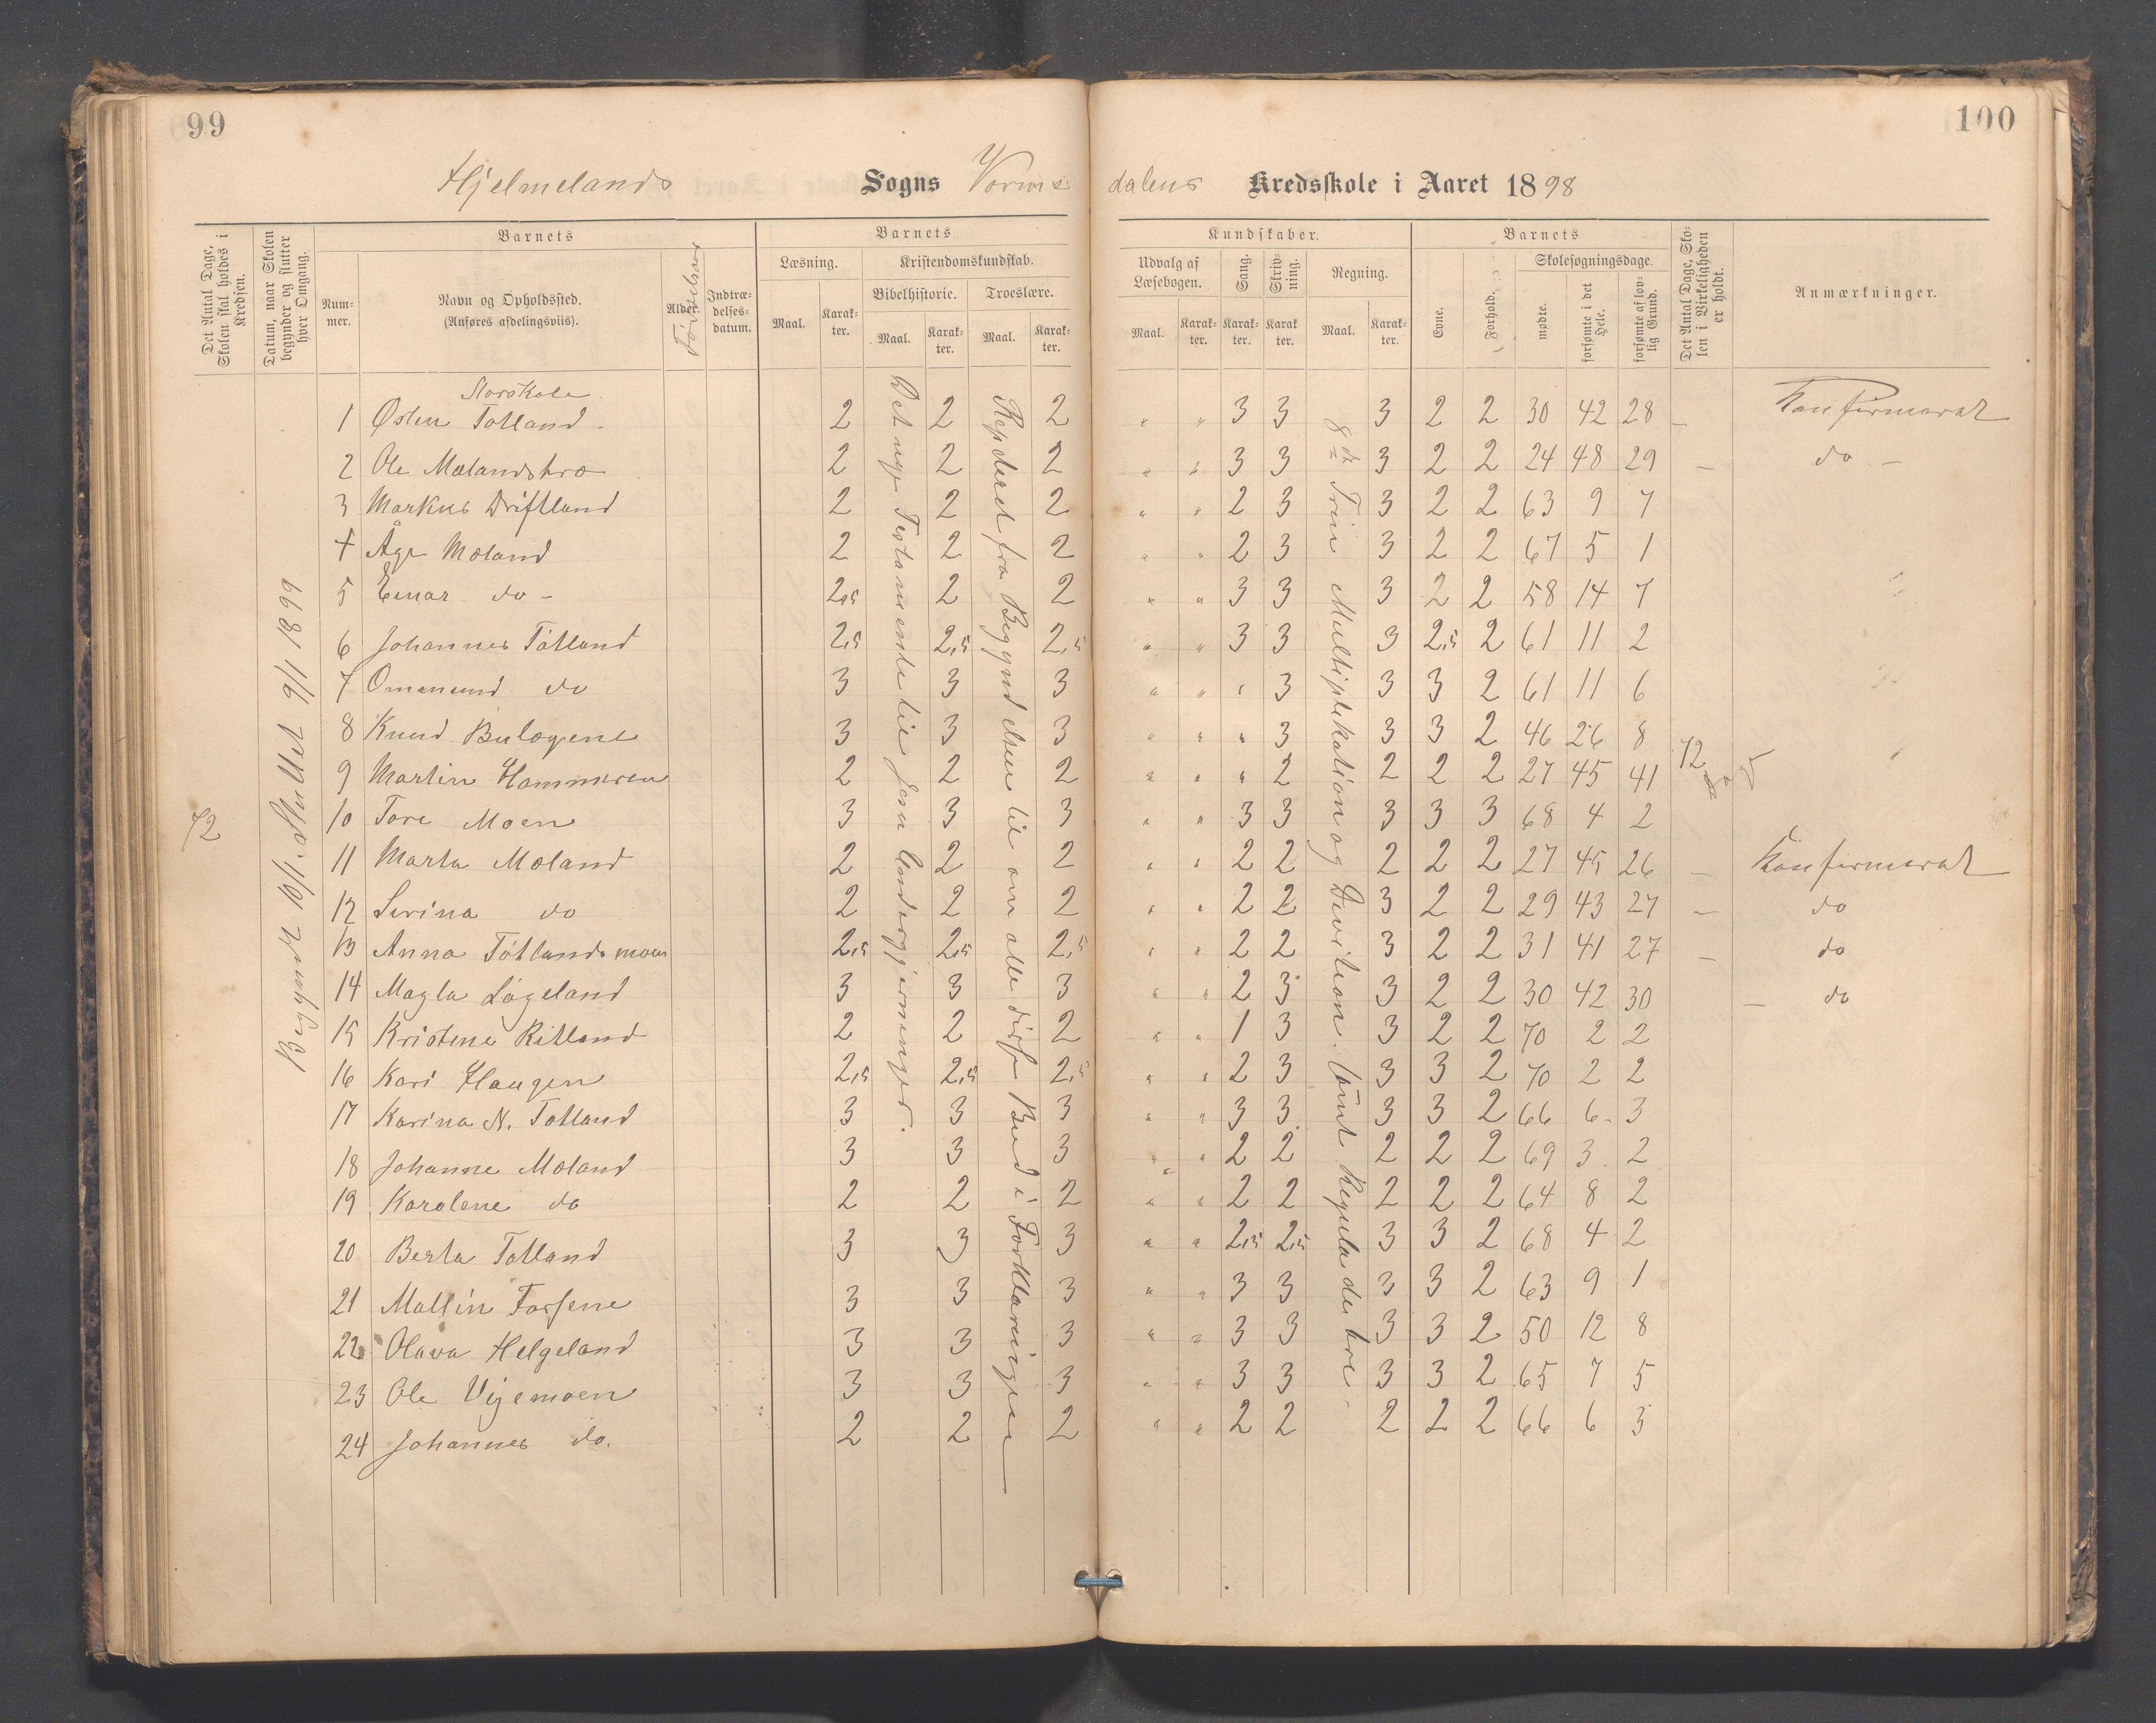 99
100
Hjelmelands Sogns Vorms dalens Kredsskole i Aaret 1898
Det Antal Dage, Skolen skal holdes i Kredsen.
Datum, naar Skolen begynder og slutter hver Omgang.
Barnets
Nummer.
Navn og Opholdssted.
(Anføres afdelingsviis).
Alder.
Indtrædelsesdatum.
Barnets
Læsning.
Kristendomskundskab.
Bibelhistorie.
Troeslære.
Maal. Karakter. Maal. Karakter. Maal. Karakter.
Kundskaber.
Udvalg af Læsebogen.
Sang.
Skrivning.
Regning.
Maal. Karakter. Karakter. Karakter. Maal. Karakter.
Barnets
Evne.
Forhold.
Skolesøgningsdage.
mødte.
forsømte i det Hele.
forsømte af lovlig Grund.
Det Antal Dage, Skolen i Virkeligheden er holdt.
Anmærkninger.
72
Begyndt 10/1. Sluttet 9/1 1899
Det nye Testamente til Jesu
Repderet fra Begyndelsen til om alle disse Bud i Forklaringen
8de Trin Multiplikation og Devition. samt Regula de tre
72
Storskole
1 Østen Totland 2 2 2 " " 3 3 3 2 2 30 42 28 – Konfirmerat
2 Ole Mælandstro 2 2 2 " " 3 3 3 2 2 24 48 29 – do –
3 Markus Driftland 2 2 2 " " 2 3 3 2 2 63 9 7
4 Åge Mæland 2 2 2 " " 2 3 3 2 2 67 5 1
5 Einar do – 2,5 2 2 " " 3 3 3 2 2 58 14 7
6 Johannes Tøtland 2,5 2,5 2,5 " " 3 3 3 2,5 2 61 11 2
7 Ommund do 3 3 3 " " " 3 3 3 2 61 11 6
8 Knud Buløgene 3 3 3 " " " 3 3 3 2 46 26 8
9 Martin Hammeren 2 2 2 " " " 2 2 2 2 27 45 41
10 Tore Moen 3 3 3 " " 3 3 3 3 3 68 4 2
11 Marta Mæland 2 2 2 " " 2 2 2 2 2 27 45 26 – Konfirmerat
12 Serina do 2 2 2 " " 2 2 3 2 2 29 43 27 – do
13 Anna Tøtlandsmoen 2,5 2,5 2,5 " " 2 2 3 2 2 31 41 27 – do
14 Magla Løgeland 3 3 3 " " 2 3 3 2 2 30 42 30 – do
15 Kristene Ritland 2 2 2 " " 1 3 3 2 2 70 2 2
16 Kari Haugen 2,5 2,5 2,5 " " 2 3 3 3 2 70 2 2
17 Karina N. Totland 3 3 3 " " 3 3 3 3 2 66 6 3
18 Johanne Mæland 3 3 3 " " 2 2 2 2 2 69 3 2
19 Karolene do 2 2 2 " " 2 2 2 2 2 64 8 2
20 Berta Totland 3 3 3 " " 2,5 2,5 3 3 2 68 4 2
21 Mallin Forsene 3 3 3 " " 3 3 3 3 2 63 9 1
22 Olava Helgeland 3 3 3 " " 3 3 3 3 2 50 12 8
23 Ole Vigemoen 3 3 3 " " 3 3 3 3 2 65 7 5
24 Johannes do. 2 2 2 " " 2 2 2 2 2 66 6 3